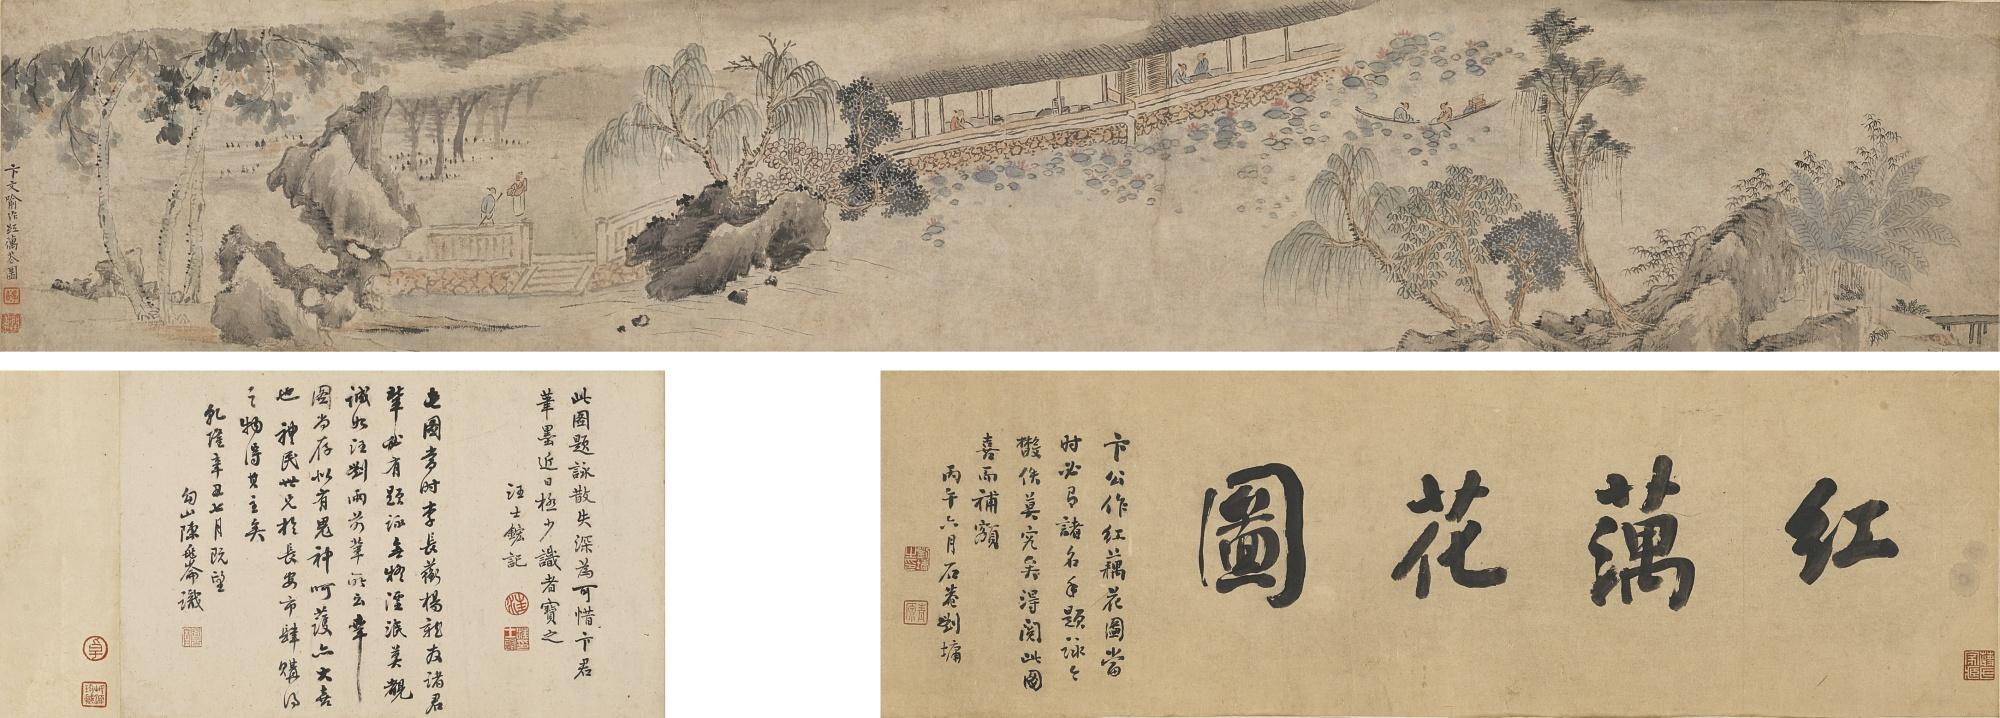 卞文瑜作紅藕花圖
紅藕花圖
卞公作紅藕花圖當
時必有諸名手題詠今
散佚莫究矣得閱此圖
喜而補額
丙午六月石菴劉墉
此圖題詠散失深為可惜卞君
筆墨近日極少識者寶之
汪士鋐記
此圖當時李長蘅楊龍友諸君
輩必有題詠無怪淫泯莫覩
誠如汪劉兩前輩所云幸
圖尚存似有鬼神呵護亦大喜
也
世兄於長安市肆購得
之物得其主矣
乾隆辛丑七月既望
句山陳